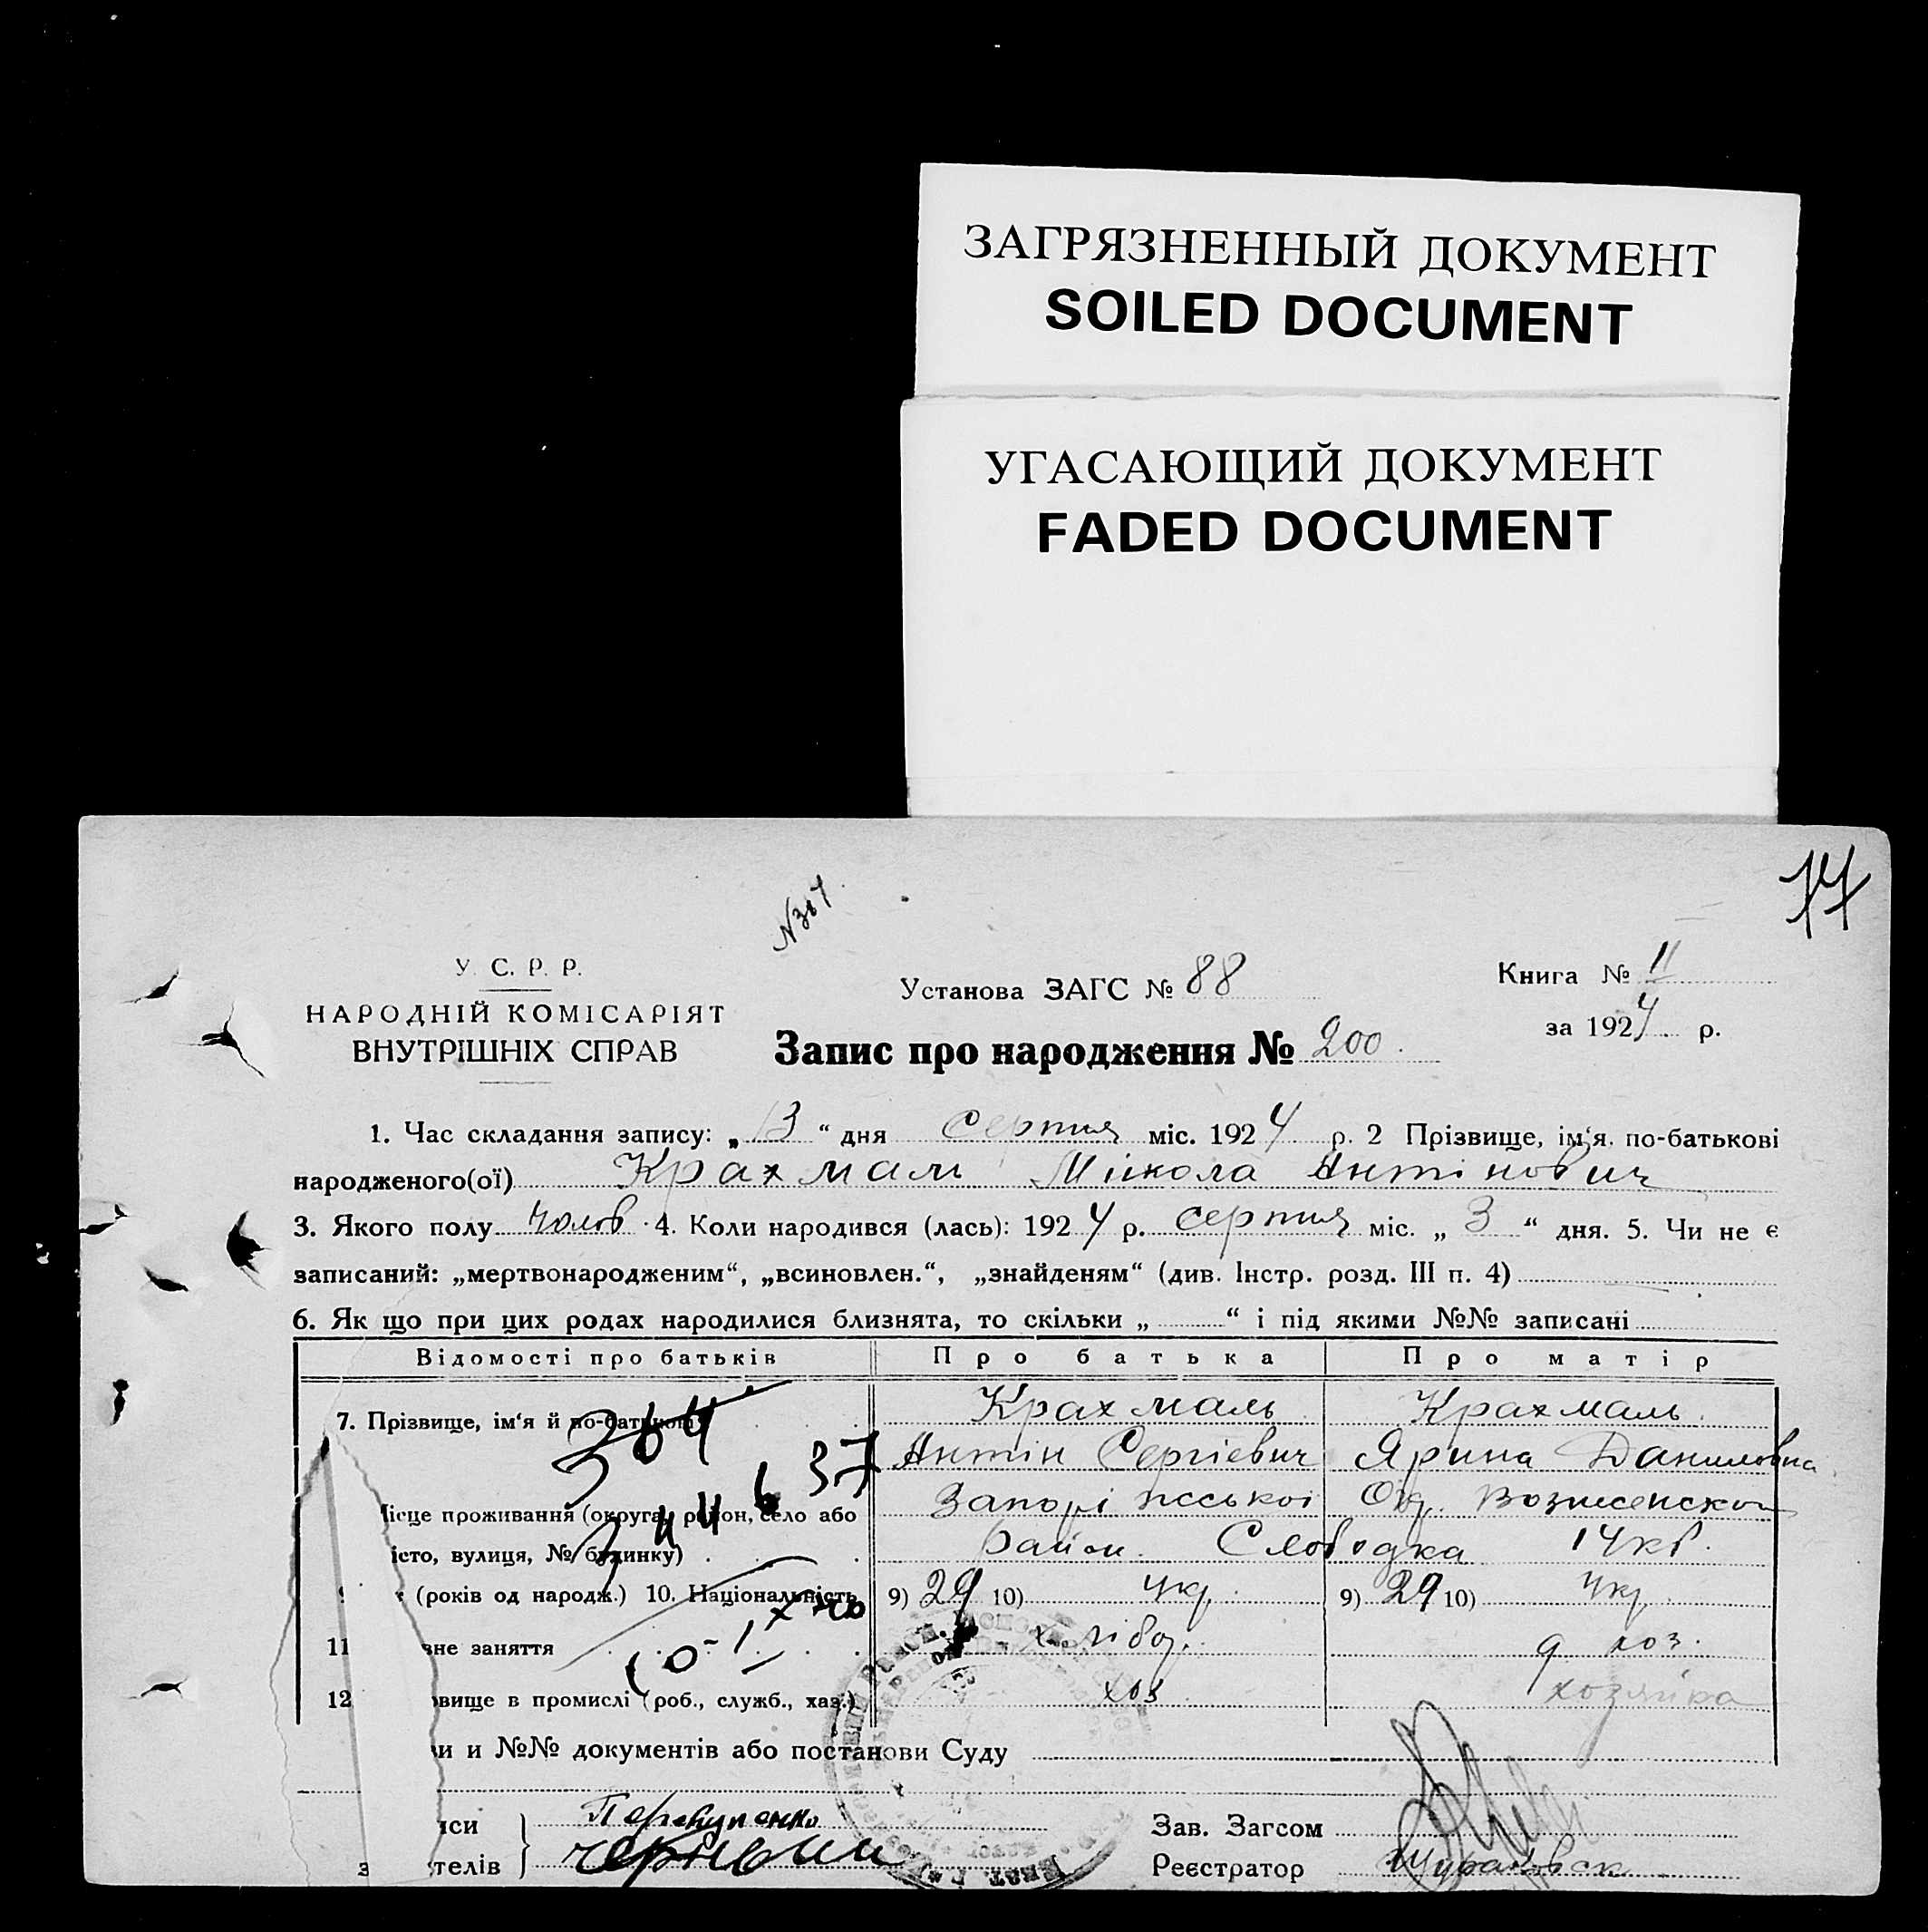 ЗАГРЯЗНЕННЫЙ ДОКУМЕНТ
SOILED DOCUMENT
УГАСАЮЩИЙ ДОКУМЕНТ
FADED DOCUMENT
У. С. Р. Р.
НАРОДНІЙ КОМІСАРІЯТ
ВНУТРІШНІХ СПРАВ
Установа ЗАГС № 88
Запис про народження № 200.
Книга № II
за 1924 р.
1. Час складання запису: „13“ дня Серпня міс. 1924 р. 2 Прізвище, ім'я, по-батькові
народженого(ої) Крахмаль Мікола Антінович
3. Якого полу чолов. 4. Коли народився (лась): 1924 р. серпня міс. „3“ дня. 5. Чи не є
записаний: „мертвонародженим“, „всиновлен.“, „знайденям“ (див. Інстр. розд. III п. 4)
6. Як що при цих родах народилися близнята, то скільки „ “ і під якими №№ записані
Відомості про батьків Про батька Про матір
7. Прізвище, ім'я й по-батькові Крахмаль Крахмаль
Антін Сергієвич Ярина Даниловна
ісце проживання (округа, район, село або Запоріжської Окр. Вознесенског
істо, вулиця, № будинку) Район. Слободка 14 кв.
(років од народж.) 10. Національність 9) 29 10) Укр. 9) 29 10) Укр.
11 вне заняття хлібор. д хоз.
12 вище в промислі (роб., служб., хаз.) хоз хозяйка
и и №№ документів або постанови Суду
иси
телів
Зав. Загсом
Реєстратор